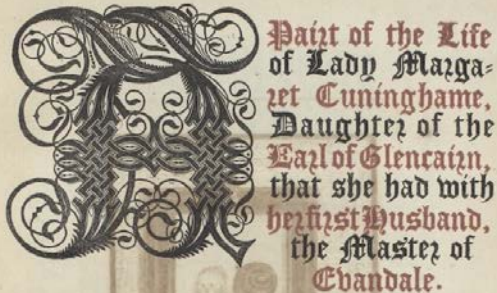 A Pairt of the Life
of Lady Marga-
ret Cuninghame,
Daughter of the
Earl of Glencairn,
that she had with
her first Husband,
the Master of
Evandale.